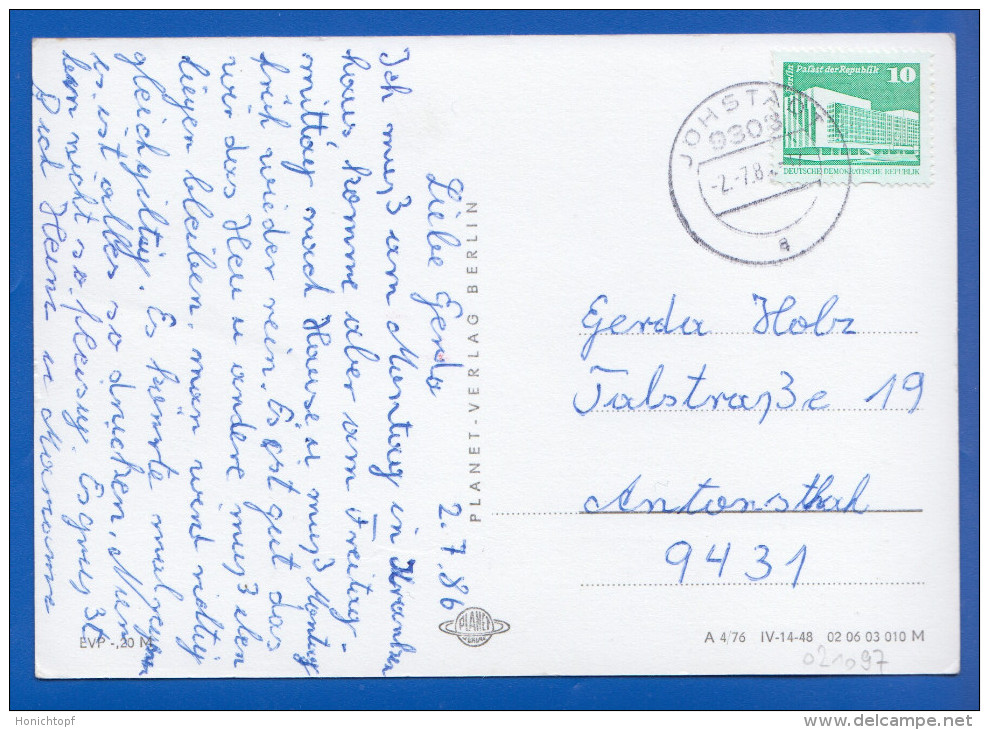 Liebe Gerda 2.7.86
Ich muß am Montag in Kranken
haus, komme aber am Freitag-
mittag nach Hause u. muß Montag
früh wieder rein. Es ist gut das
wir das Heu u andere muß eben
liegen bleiben. man wird richtig
gleichgiltig. Es könnte mal regnen
es ist alles so drücken. Nem
bem nicht so fleisig. Es grüßt
Dich Heinz u Mamma
PLANET-VERLAG BERLIN
PLANET
VERLAG
EVP -,20 M
Berlin Palast der Republik 10
DEUTSCHE DEMOKRATISCHE REPUBLIK
JÖHSTADT
9303
-2.-7.8
a
Gerda Holz
Talstraße 19
Antonsthal
9431
A 4/76 IV-14-48 02 06 03 010 M
021097
Honichtopf
www.delcampe.net